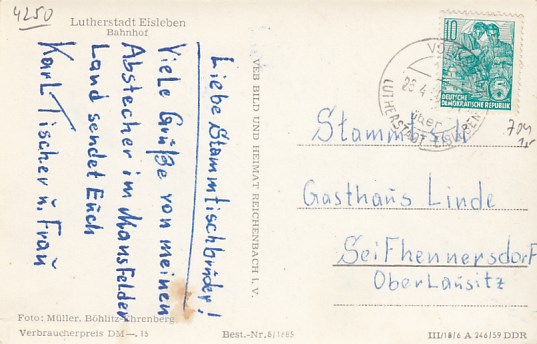 4250
Lutherstadt Eisleben
Bahnhof
Liebe Stammtischbrüder!
Viele Grüße von meinen
Abstecher im Mansfelder
Land sendet Euch
Karl Tischer u. Frau
VEB BILD UND HEIMAT REICHENBACH I. V.
10
DEUTSCHE
DEMOKRATISCHE REPUBLIK
über
LUTHERSTADT EISLEBEN
Stammtisch
Gasthaus Linde
Seifhennersdorf
Oberlausitz
Foto: Müller, Böhlitz-Ehrenberg
Verbraucherpreis DM —,15
Best.-Nr. 8/1685
III/18/6 A 246/59 DDR